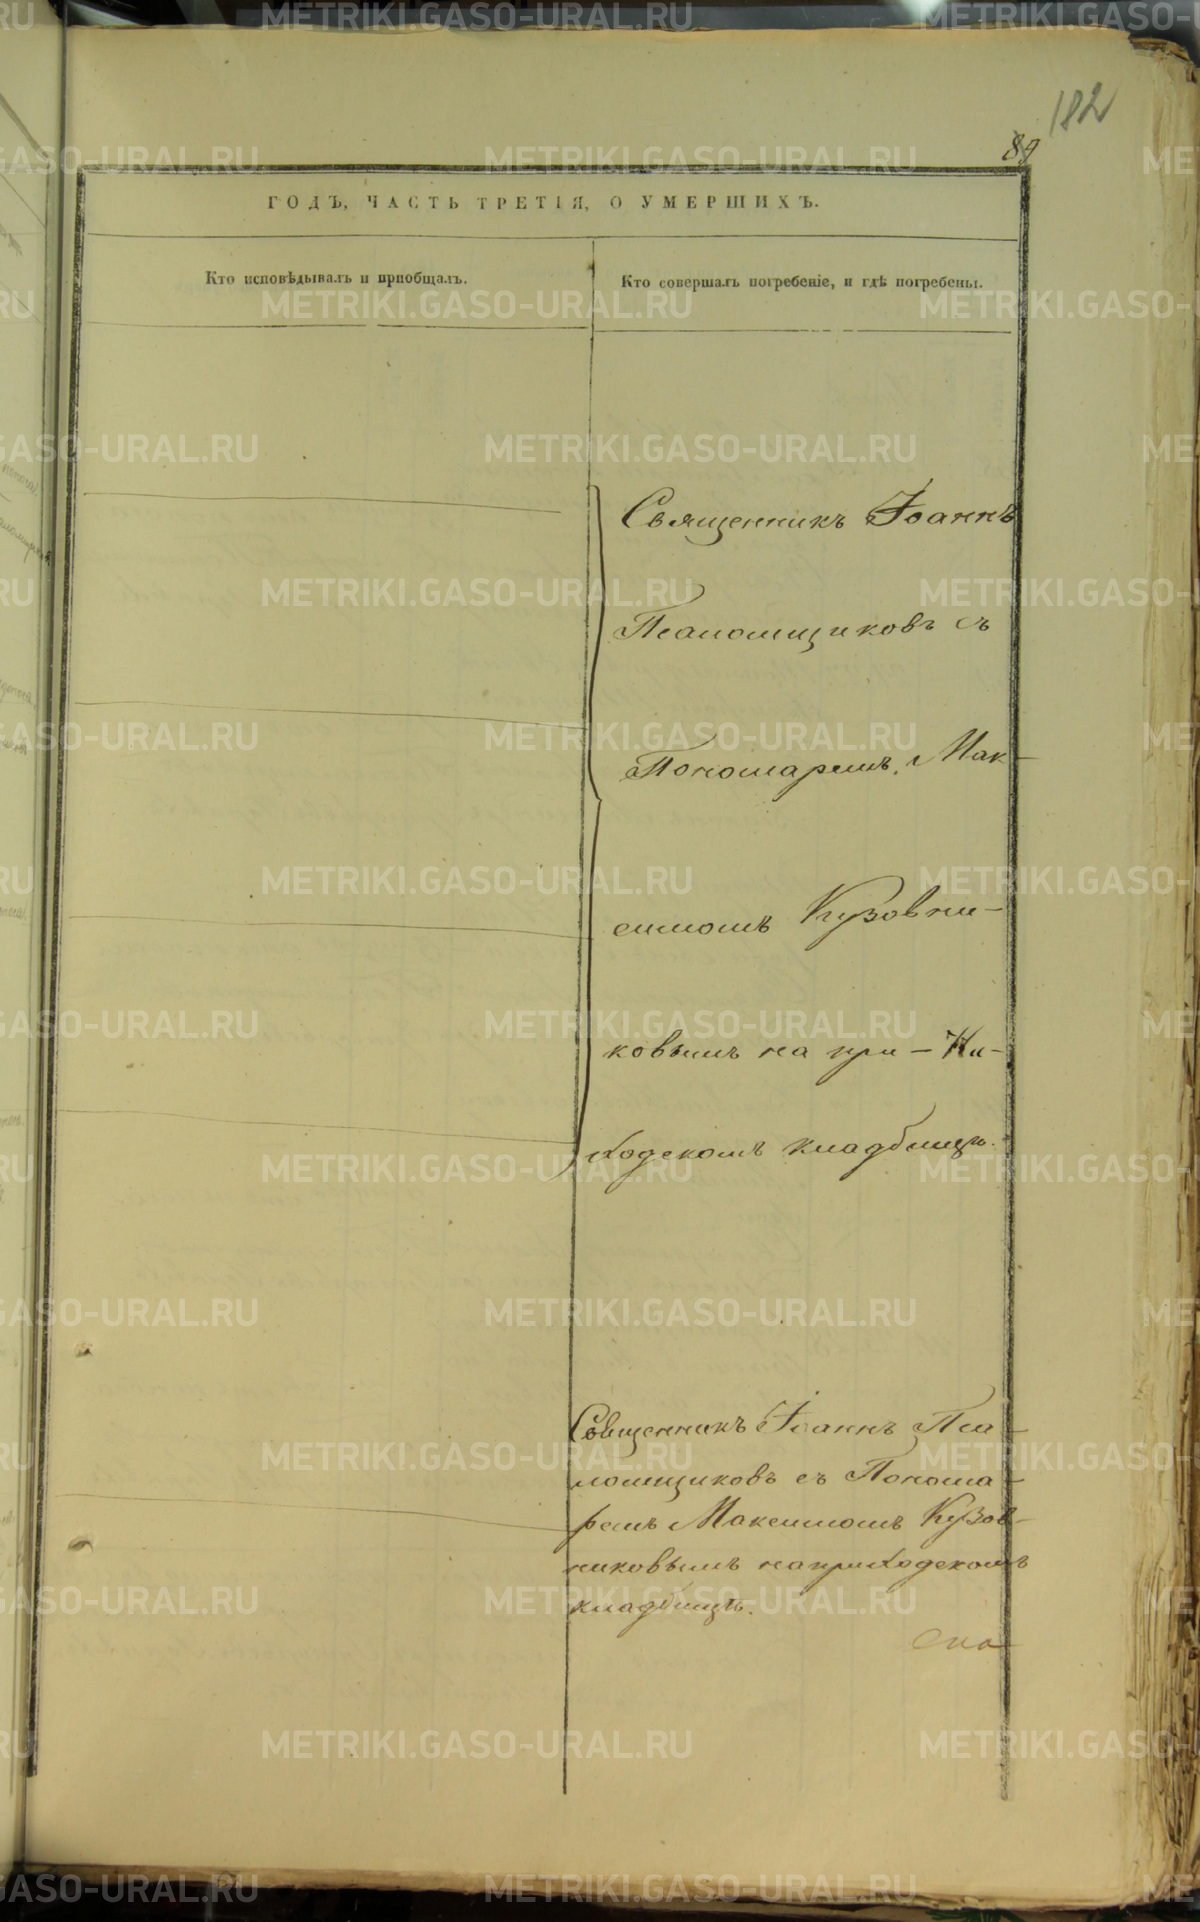 182
89
ГОДЪ, ЧАСТЬ ТРЕТІЯ, О УМЕРШИХЪ.
Кто исповѣдывалъ и пріобщалъ.
Кто совершалъ погребеніе, и гдѣ погребены.
Священникъ Іоаннъ
Псаломщиковъ съ
Пономаремъ Мак-
симомъ Кузовни-
ковымъ на при-
ходскомъ кладбищѣ.
Священникъ Іоаннъ Пса-
ломщиковъ съ Понома-
ремъ Максимомъ Кузов-
никовымъ на приходскомъ
кладбищѣ.
METRIKI.GASO-URAL.RU